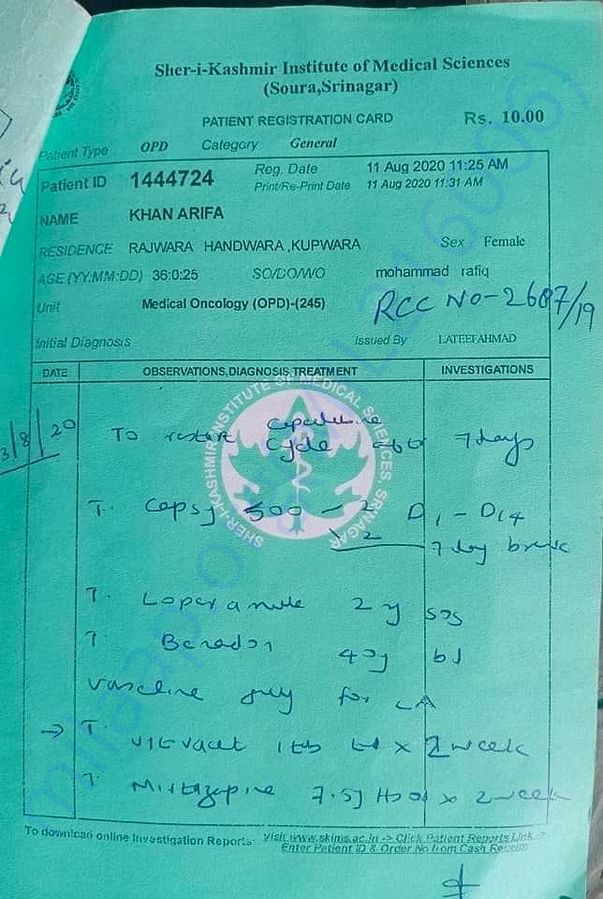 Sher-i-Kashmir Institute of Medical Sciences
(Soura,Srinagar)
PATIENT REGISTRATION CARD Rs. 10.00
Patient Type OPD Category General
Patient ID 1444724 Reg. Date 11 Aug 2020 11:25 AM
Print/Re-Print Date 11 Aug 2020 11:31 AM
NAME KHAN ARIFA
RESIDENCE RAJWARA HANDWARA ,KUPWARA Sex Female
AGE (YY:MM:DD) 36:0:25 SO/DO/WO mohammad rafiq
Unit Medical Oncology (OPD)-(245) RCC NO-2687/19
Initial Diagnosis Issued By LATEEFAHMAD
DATE OBSERVATIONS,DIAGNOSIS,TREATMENT INVESTIGATIONS
SHER-I-KASHMIR INSTITUTE OF MEDICAL SCIENCES, SRINAGAR
3/8/20 To restart
cycle after 7 days
T. 500 - 2 D1 - D14
2 7 day break
T. 2 sos
T. 40 bd
vaseline for LA
→ T. x 2 week
T. Mirtazapine 7.5 x 2 week
To download online Investigation Reports: Visit www.skims.ac.in -> Click Patient Reports Link ->
Enter Patient ID & Order No from Cash Receipt